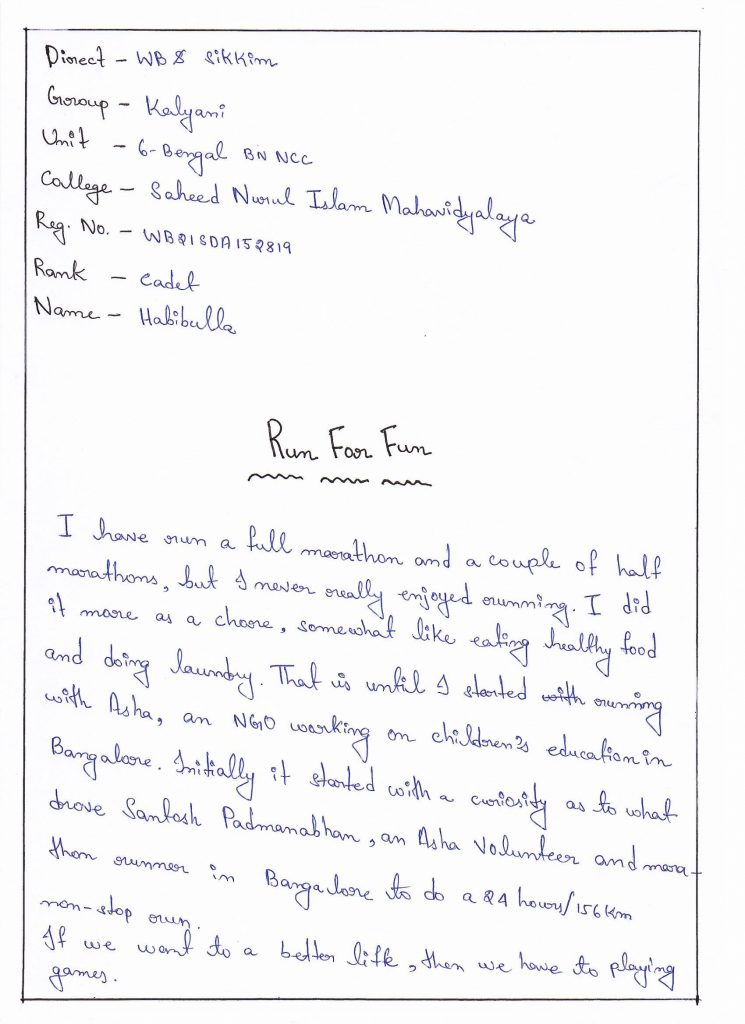 Direct - WB & Sikkim
Group - Kalyani
Unit - 6-Bengal BN NCC
College - Saheed Nurul Islam Mahavidyalaya
Reg. No. - WB21SDA152819
Rank - Cadet
Name - Habibulla
Run For Fun
I have run a full marathon and a couple of half
marathons, but I never really enjoyed running. I did
it more as a chore, somewhat like eating healthy food
and doing laundry. That is until I started with running
with Asha, an NGO working on children's education in
Bangalore. Initially it started with a curiosity as to what
drove Santosh Padmanabhan, an Asha Volunteer and mara-
thon runner in Bangalore to do a 24 hours/156Km
non-stop run.
If we want to a better life, then we have to playing
games.